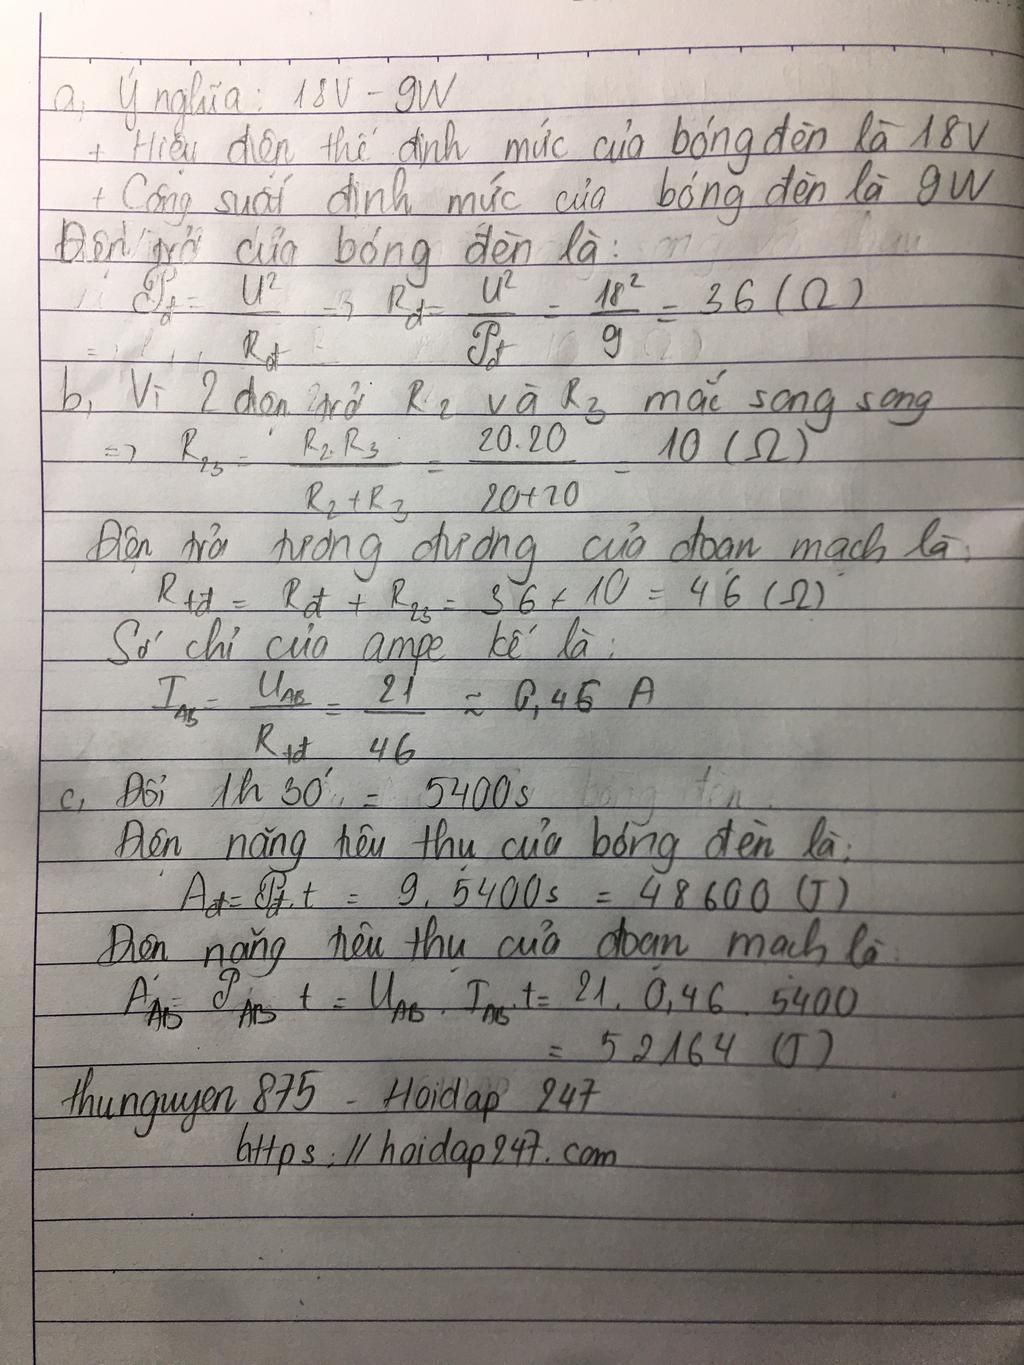 a, Ý nghĩa: 18V - 9W
+ Hiệu điện thế định mức của bóng đèn là 18V
+ Công suất định mức của bóng đèn là 9W
Điện trở của bóng đèn là:
𝒫đ = U²/Rđ => Rđ = U²/𝒫đ = 18²/9 = 36 (Ω)
b, Vì 2 điện trở R2 và R3 mắc song song
=> R23 = R2.R3/R2+R3 = 20.20/20+20 = 10 (Ω)
Điện trở tương đương của đoạn mạch là:
Rtđ = Rđ + R23 = 36 + 10 = 46 (Ω)
Số chỉ của ampe kế là:
IAB = UAB/Rtđ = 21/46 ≈ 0,46 A
c, Đổi 1h 30' = 5400s
Điện năng tiêu thụ của bóng đèn là:
Ađ = 𝒫đ.t = 9.5400s = 48600 (J)
Điện năng tiêu thụ của đoạn mạch là
AAB = 𝒫AB t = UAB.IAB.t = 21.0,46.5400
= 52164 (J)
thunguyen875 - Hoidap 247
https://hoidap247.com